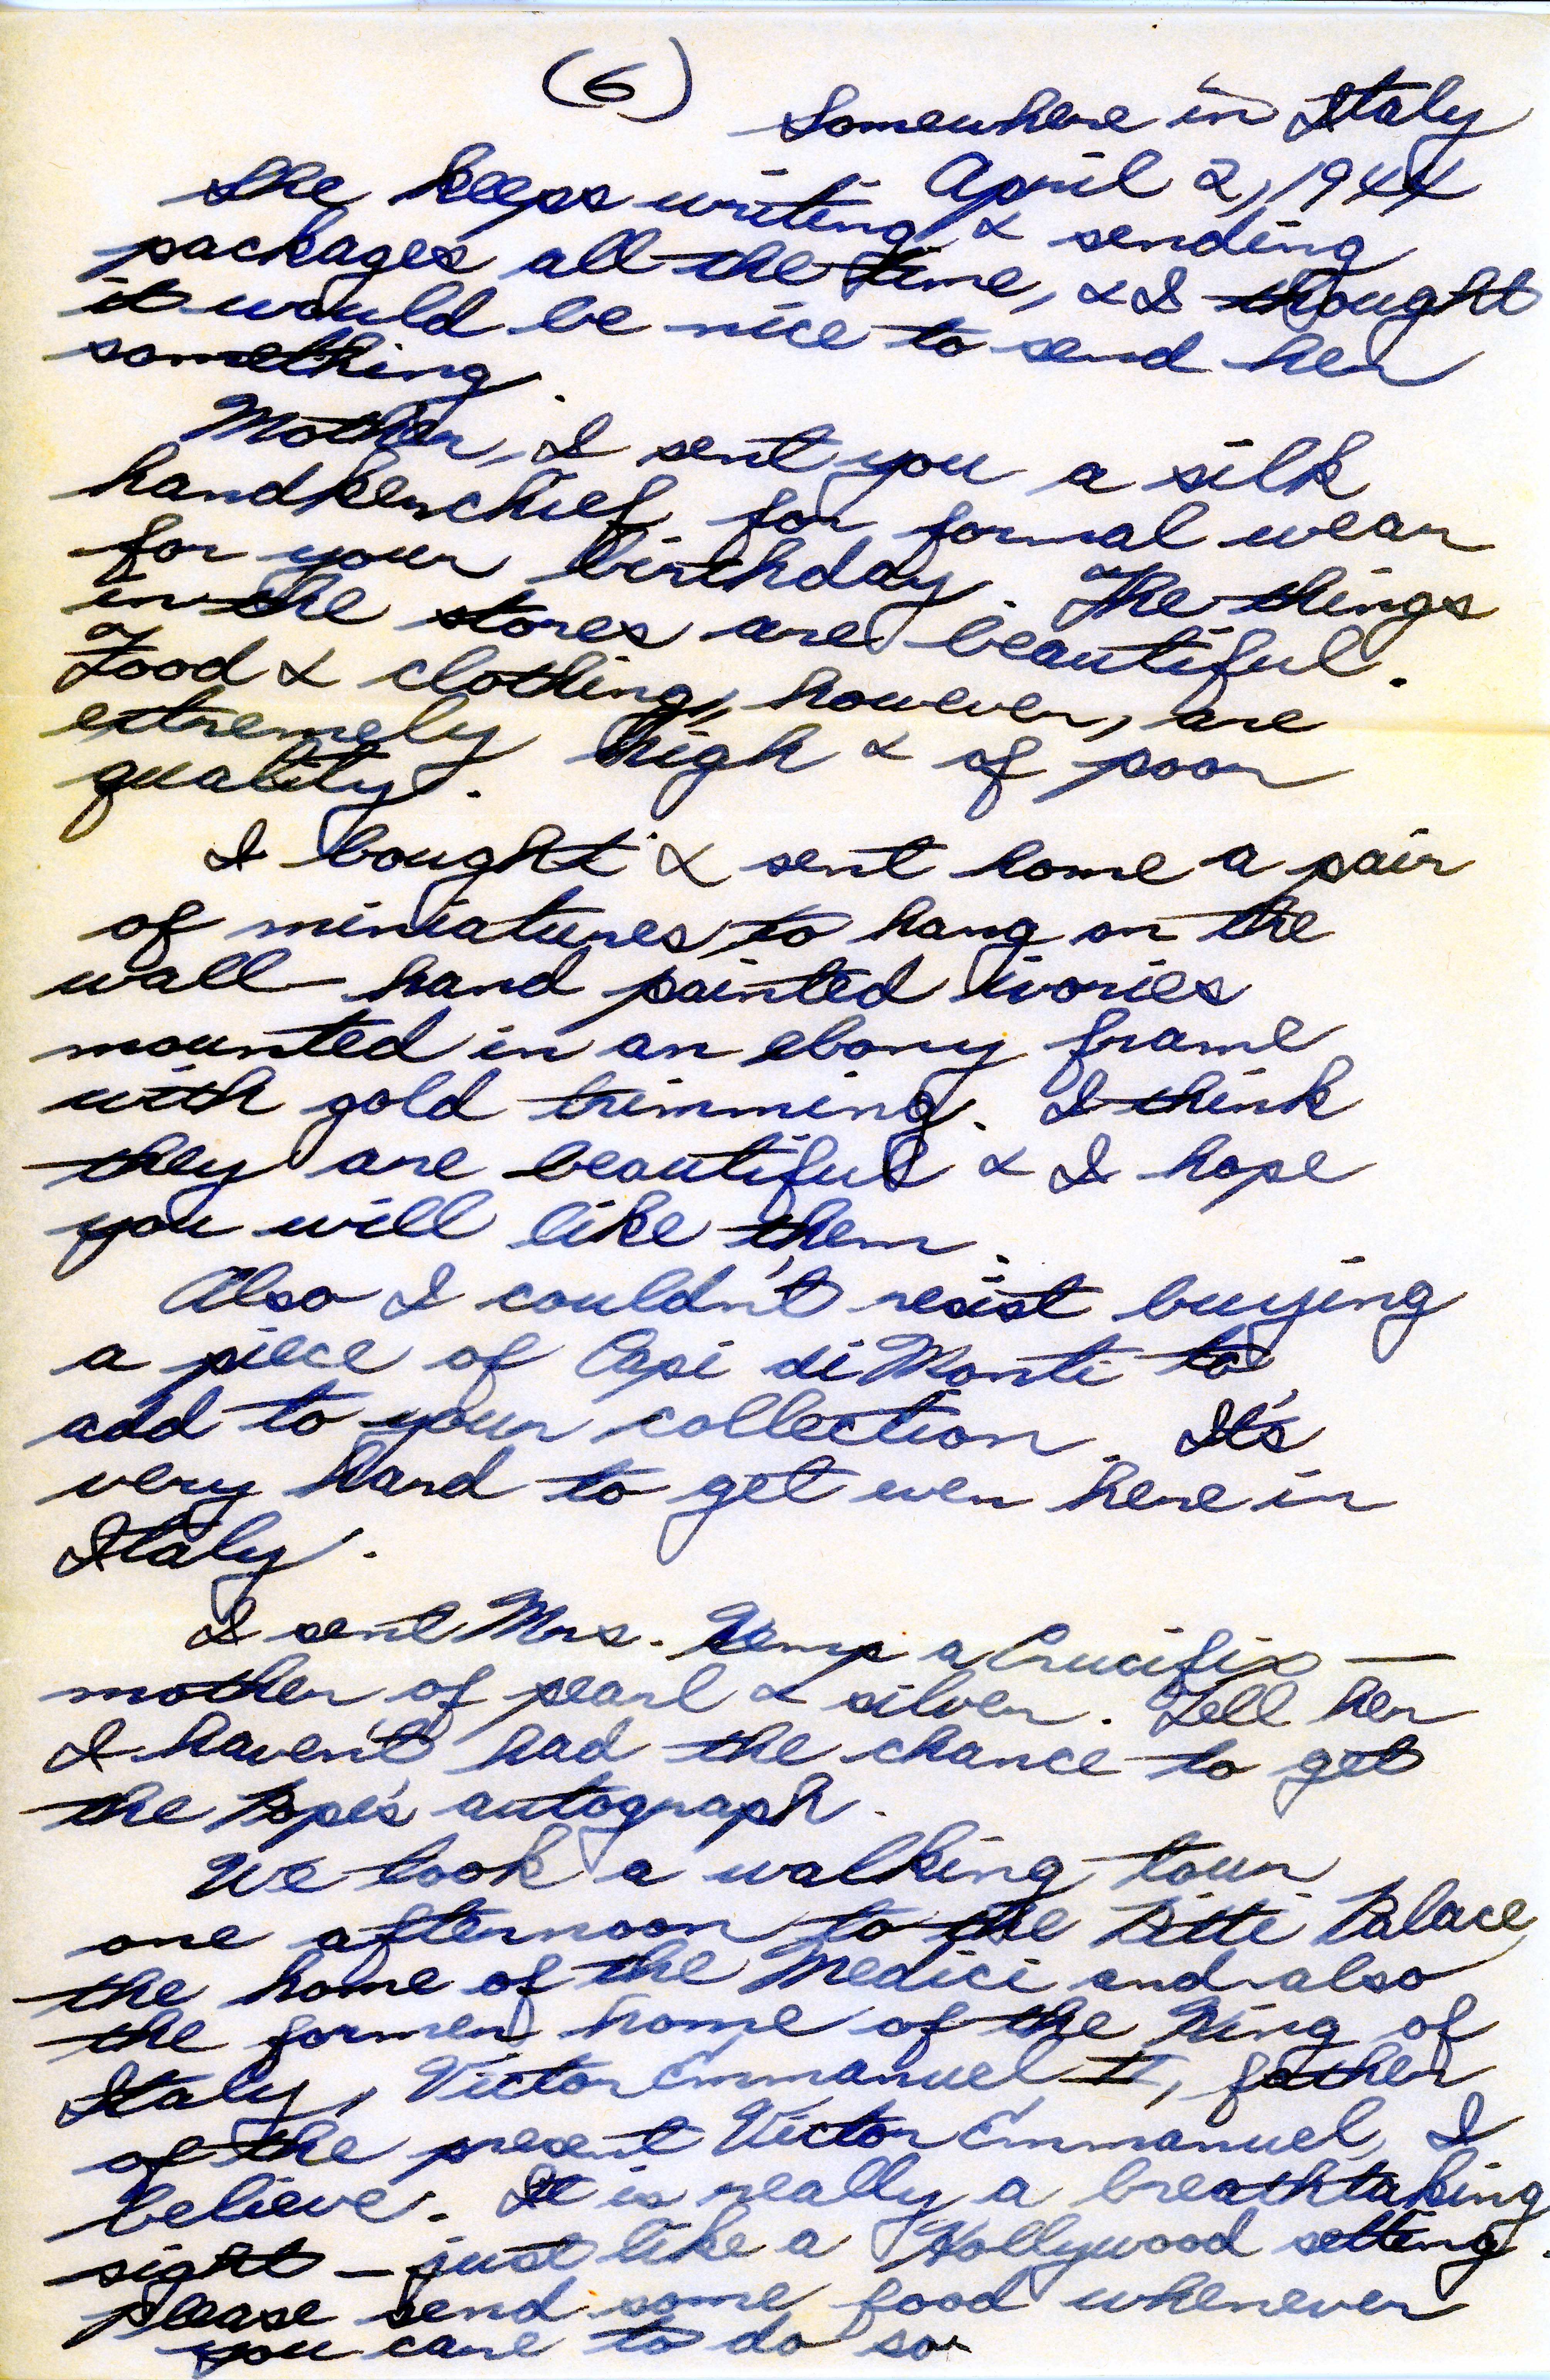 (6)
Somewhere in Italy
April 2, 1944
She keeps writing & sending
packages all the time, & I thought
it would be nice to send her
something.
Mother, I sent you a silk
handkerchief for formal wear
for your birthday. The things
in the stores are beautiful.
Food & clothing, however, are
extremely high & of poor
quality.
I bought & sent home a pair
of miniatures to hang on the
wall - hand painted ivories
mounted in an ebony frame
with gold trimming. I think
they are beautiful & I hope
you will like them.
Also I couldn't resist buying
a piece of Capi di Monti to
add to your collection. It's
very hard to get even here in
Italy.
I sent Mrs. Kemp a Crucifix —
mother of pearl & silver. Tell her
I haven't had the chance to get
the Pope's autograph.
We took a walking tour
one afternoon to the Pitti Palace,
the home of the Medici and also
the former home of the King of
Italy, Victor Emmanuel II, father
of the present Victor Emmanuel, I
believe. It is really a breathtaking
sight - just like a Hollywood setting.
please send some food whenever
you care to do so